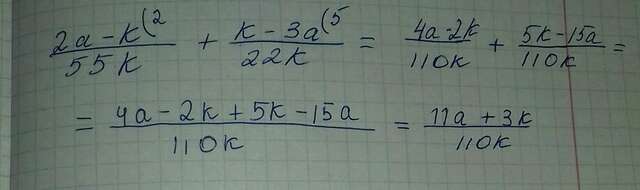 (2a - k(2)/(55k) + (k - 3a(5)/(22k) = (4a - 2k)/(110k) + (5k - 15a)/(110k) =
= (4a - 2k + 5k - 15a)/(110k) = (11a + 3k)/(110k)